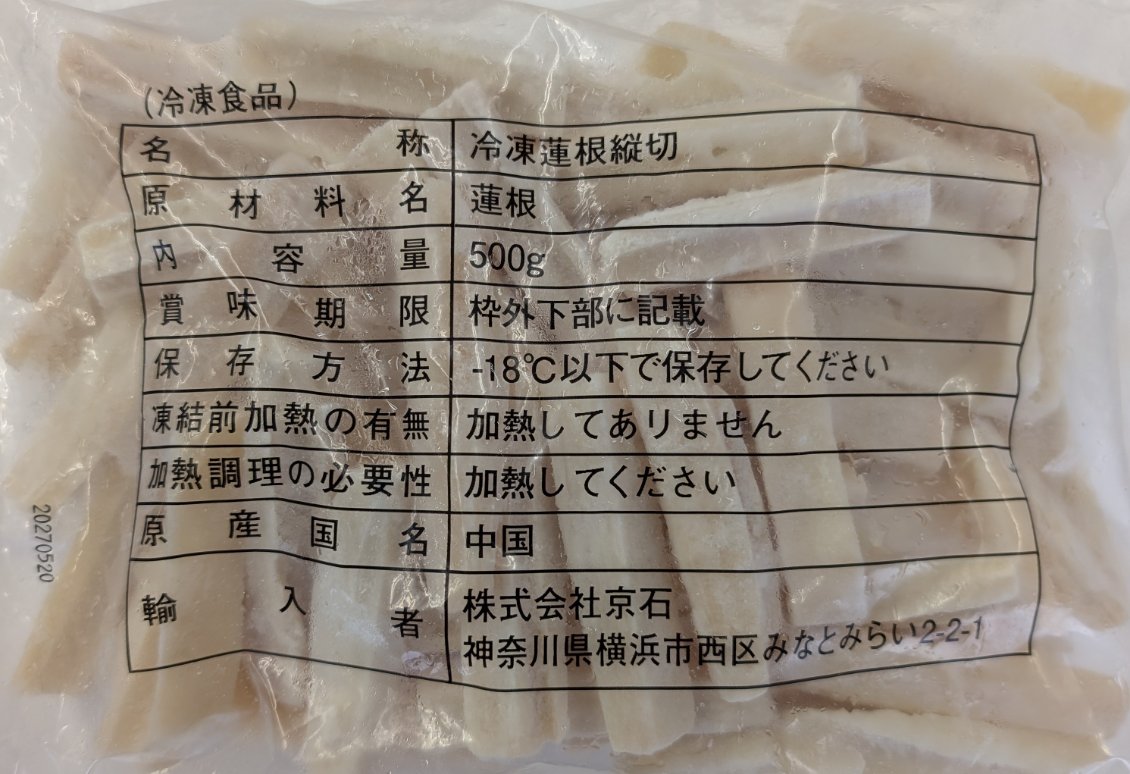 (冷凍食品)
名称 冷凍蓮根縦切
原材料名 蓮根
内容量 500g
賞味期限 枠外下部に記載
保存方法 -18℃以下で保存してください
凍結前加熱の有無 加熱してありません
加熱調理の必要性 加熱してください
原産国名 中国
輸入者 株式会社京石
神奈川県横浜市西区みなとみらい2-2-1
20270520